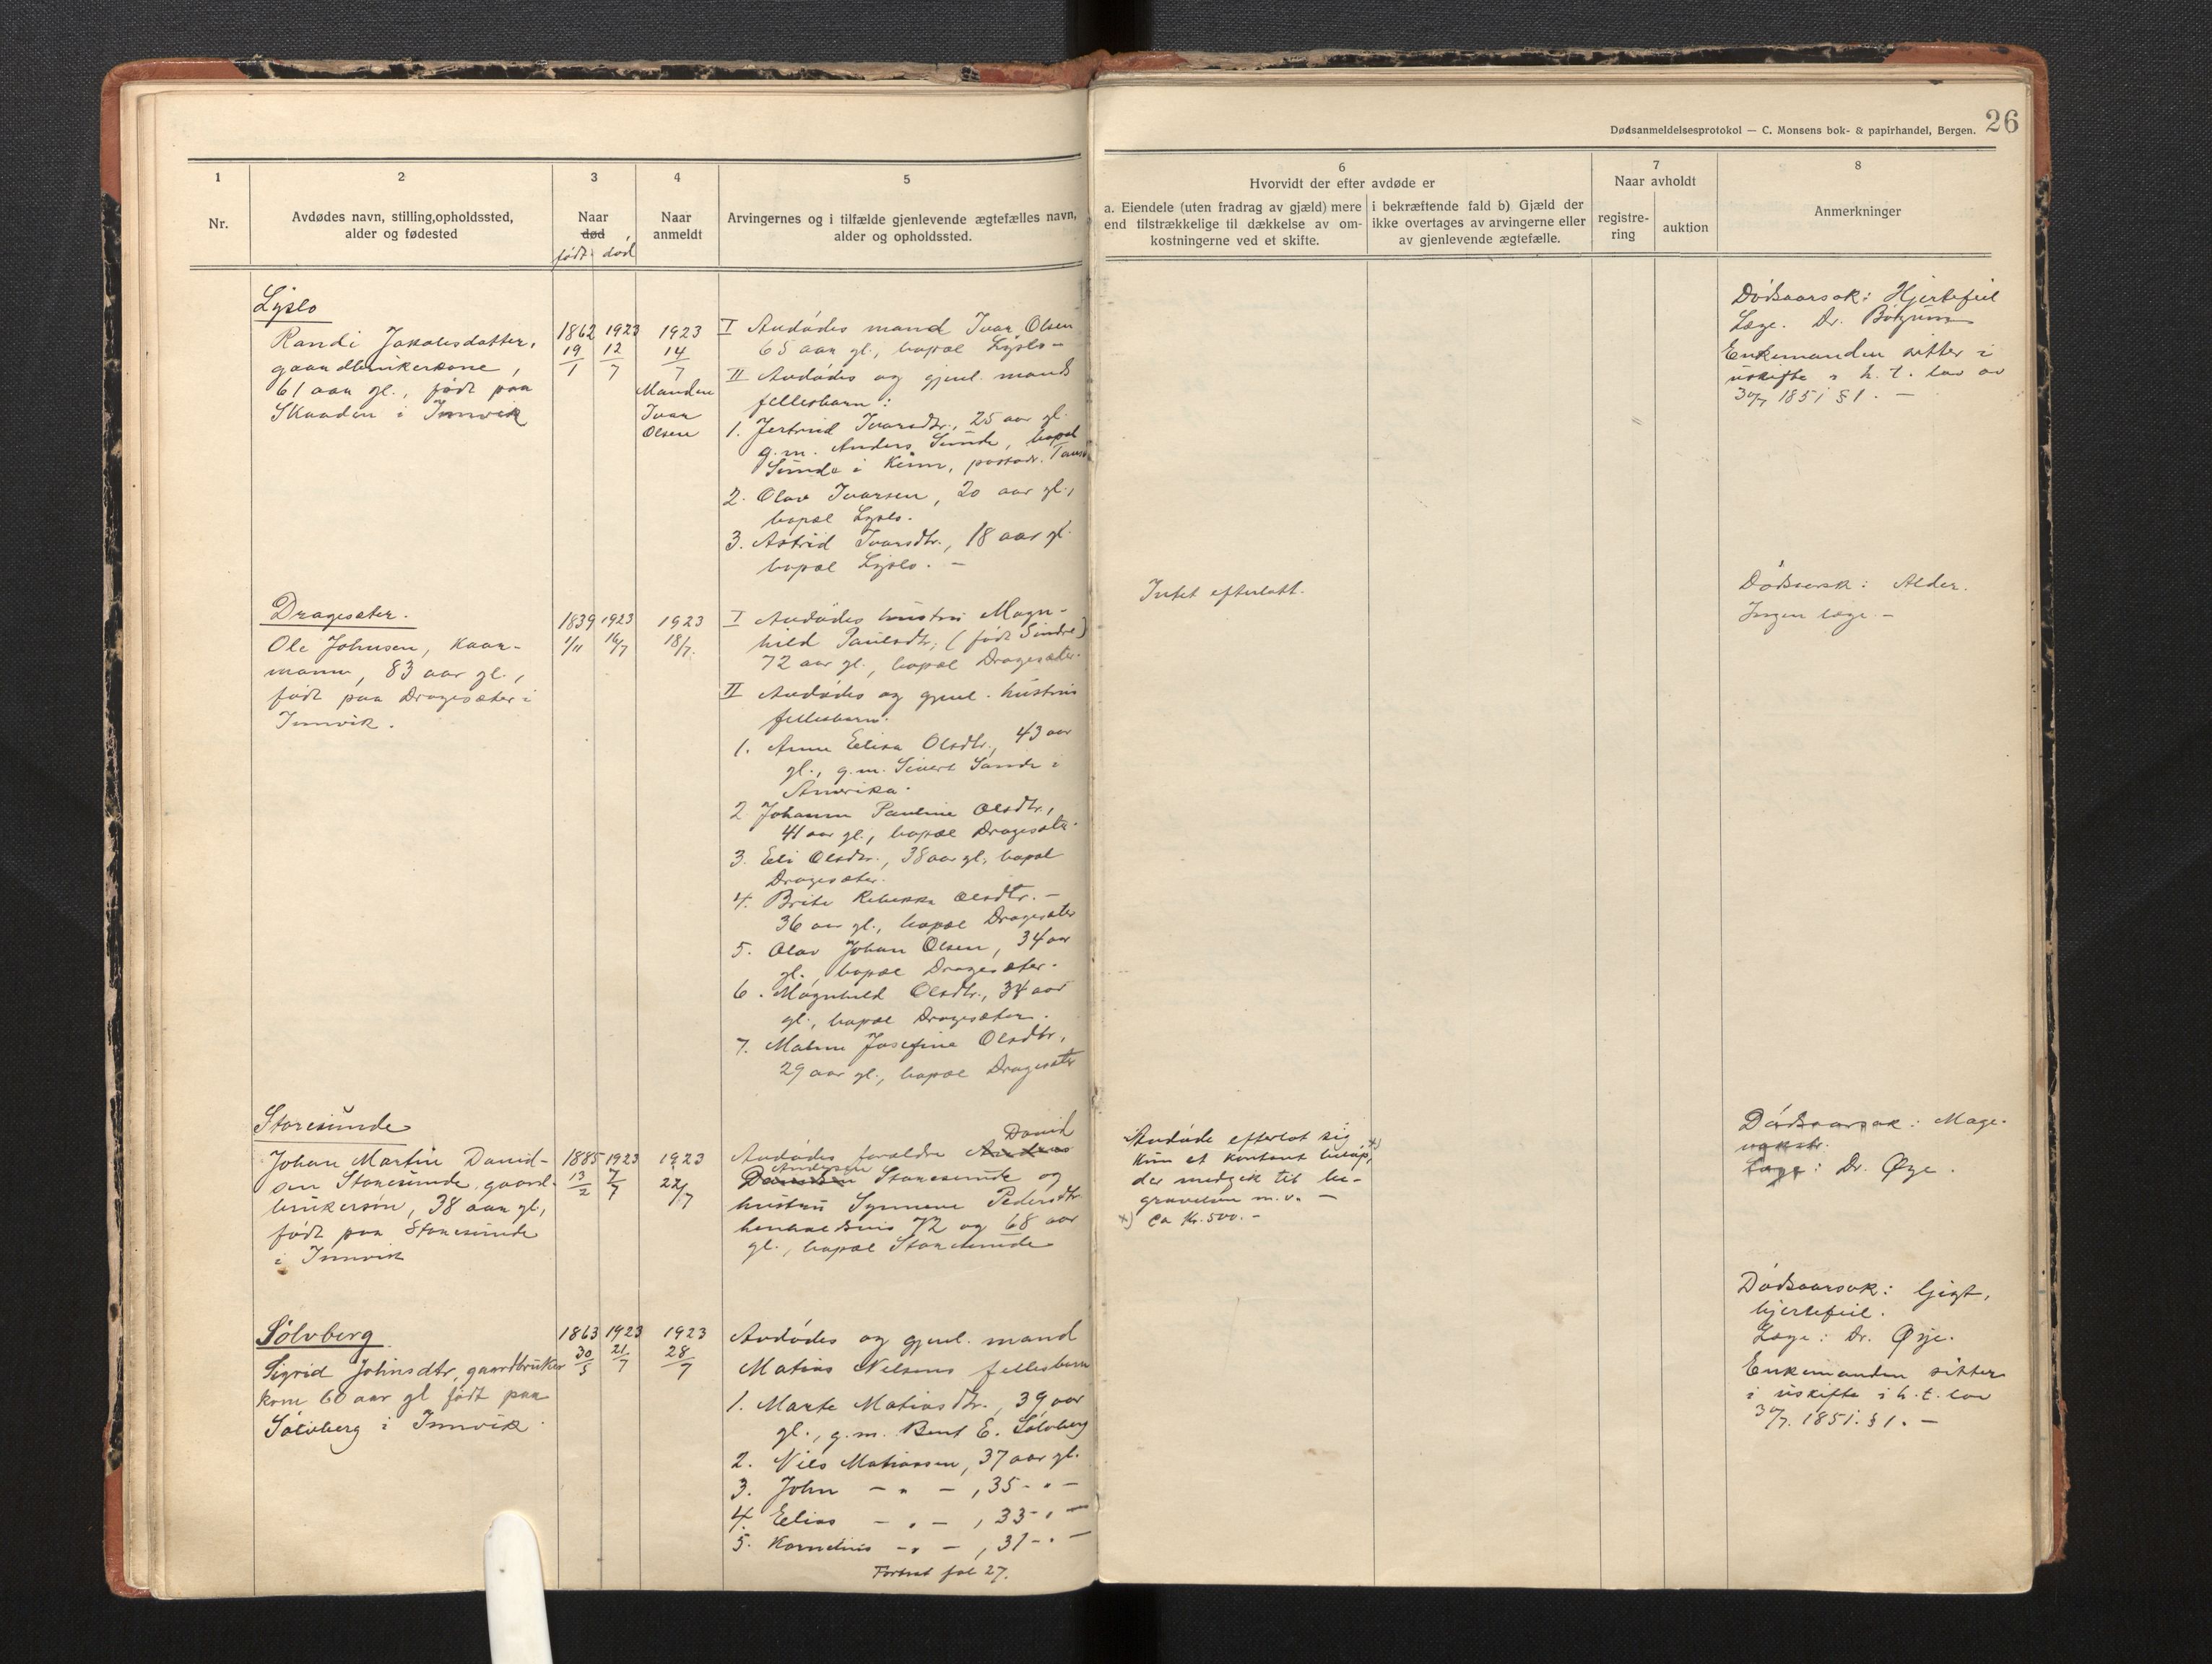 26
Dødsanmeldelsesprotokol — C. Monsens bok- & papirhandel, Bergen.
1
Nr.
2
Avdødes navn, stilling, opholdssted,
alder og fødested
3
Naar
død
født død
4
Naar
anmeldt
5
Arvingernes og i tilfælde gjenlevende ægtefælles navn,
alder og opholdssted.
6
Hvorvidt der efter avdøde er
a. Eiendele (uten fradrag av gjæld) mere
end tilstrækkelige til dækkelse av om-
kostningerne ved et skifte.
i bekræftende fald b) Gjæld der
ikke overtages av arvingerne eller
av gjenlevende ægtefælle.
7
Naar avholdt
registre-
ring
auktion
8
Anmerkninger
Lyslo
Randi Jakobsdatter,
gaardbrukerkone,
61 aar gl., født paa
Skaaden i Innvik
1862 19/1
1923 12/7
1923 14/7
Manden
Ivar
Olsen
I Avdødes mand Ivar Olsen
65 aar gl., bopæl Lyslo –
II Avdødes og gjenl. mands
fellesbarn:
1. Jertrud Ivarsdtr., 25 aar gl.
g.m. Anders Sunde, bopæl
Sunde i Kinn, postadr.
2. Olav Ivarsen, 20 aar gl.,
bopæl Lyslo.
3. Astrid Ivarsdtr., 18 aar gl.
bopæl Lyslo. –
Dødsaarsak: Hjertefeil
Læge. Dr.
Enkemanden sitter i
uskifte i h. t. lov av
30/7 1851 § 1. –
Dragesæter.
Ole Johnsen, kaar-
mann, 83 aar gl.,
født paa Dragesæter i
Innvik.
1839 1/11
1923 16/7
1923 18/7.
I Avdødes hustru Magn-
hild Paulsdtr, (født Sindre)
72 aar gl., bopæl Dragesæter.
II Avdødes og gjenl. hustrus
fellesbarn.
1. Anne Elisa Olsdtr., 43 aar
gl., g.m. Sivert Sande i
Amerika.
2 Johanne Pauline Olsdtr.,
41 aar gl., bopæl Dragesæter.
3. Eli Olsdtr., 38 aar gl, bopæl
Dragesæter.
4. Brite Rebekka Olsdtr. –
36 aar gl., bopæl Dragesæter
5. Olav Johan Olsen, 34 aar
gl., bopæl Dragesæter.
6. Magnhild Olsdtr., 34 aar
gl., bopæl Dragesæter.
7. Malene Josefine Olsdtr,
29 aar gl., bopæl Dragesæter
Intet efterlatt.
Dødsaarsak: Alder.
Ingen læge. –
Storesunde
Johan Martin David-
sen Storesunde, gaard-
brukersøn, 38 aar gl,
født paa Storesunde
i Innvik
1885 13/2
1923 7/7
1923 22/7
David
Avdødes foreldre Andreas
Andersen
Davidsen Storesunde og
hustru Synneve Pedersdtr.
henholdsvis 72 og 68 aar
gl., bopæl Storesunde
Avdøde efterlot sig
kun et kontant beløp, x)
der medgik til be-
gravelsen m.v. –
x) ca kr. 500. –
Dødsaarsak: Mage-
Læge: Dr. Øye.
Sølvberg
Sigrid Johnsdtr, gaardbruker
kone 60 aar gl født paa
Sølvberg i Innvik.
1863 30/5
1923 21/7
1923 28/7
Avdødes og gjenl. mand
Matias Nilsens fellesbarn
1. Marte Matiasdtr., 39 aar
gl., g.m. Bent E. Sølvberg
2. Nils Matiassen, 37 aar gl.
3. John – " –, 35 - " –
4. Elias – " –, 33 - " –
5. Kornelius – " –, 31 - " –
Fortsat fol 27.
Dødsaarsak: Gigt,
hjertefeil.
Læge: Dr. Øye.
Enkemanden sitter
i uskifte i h.t. lov
30/7. 1851. § 1. –